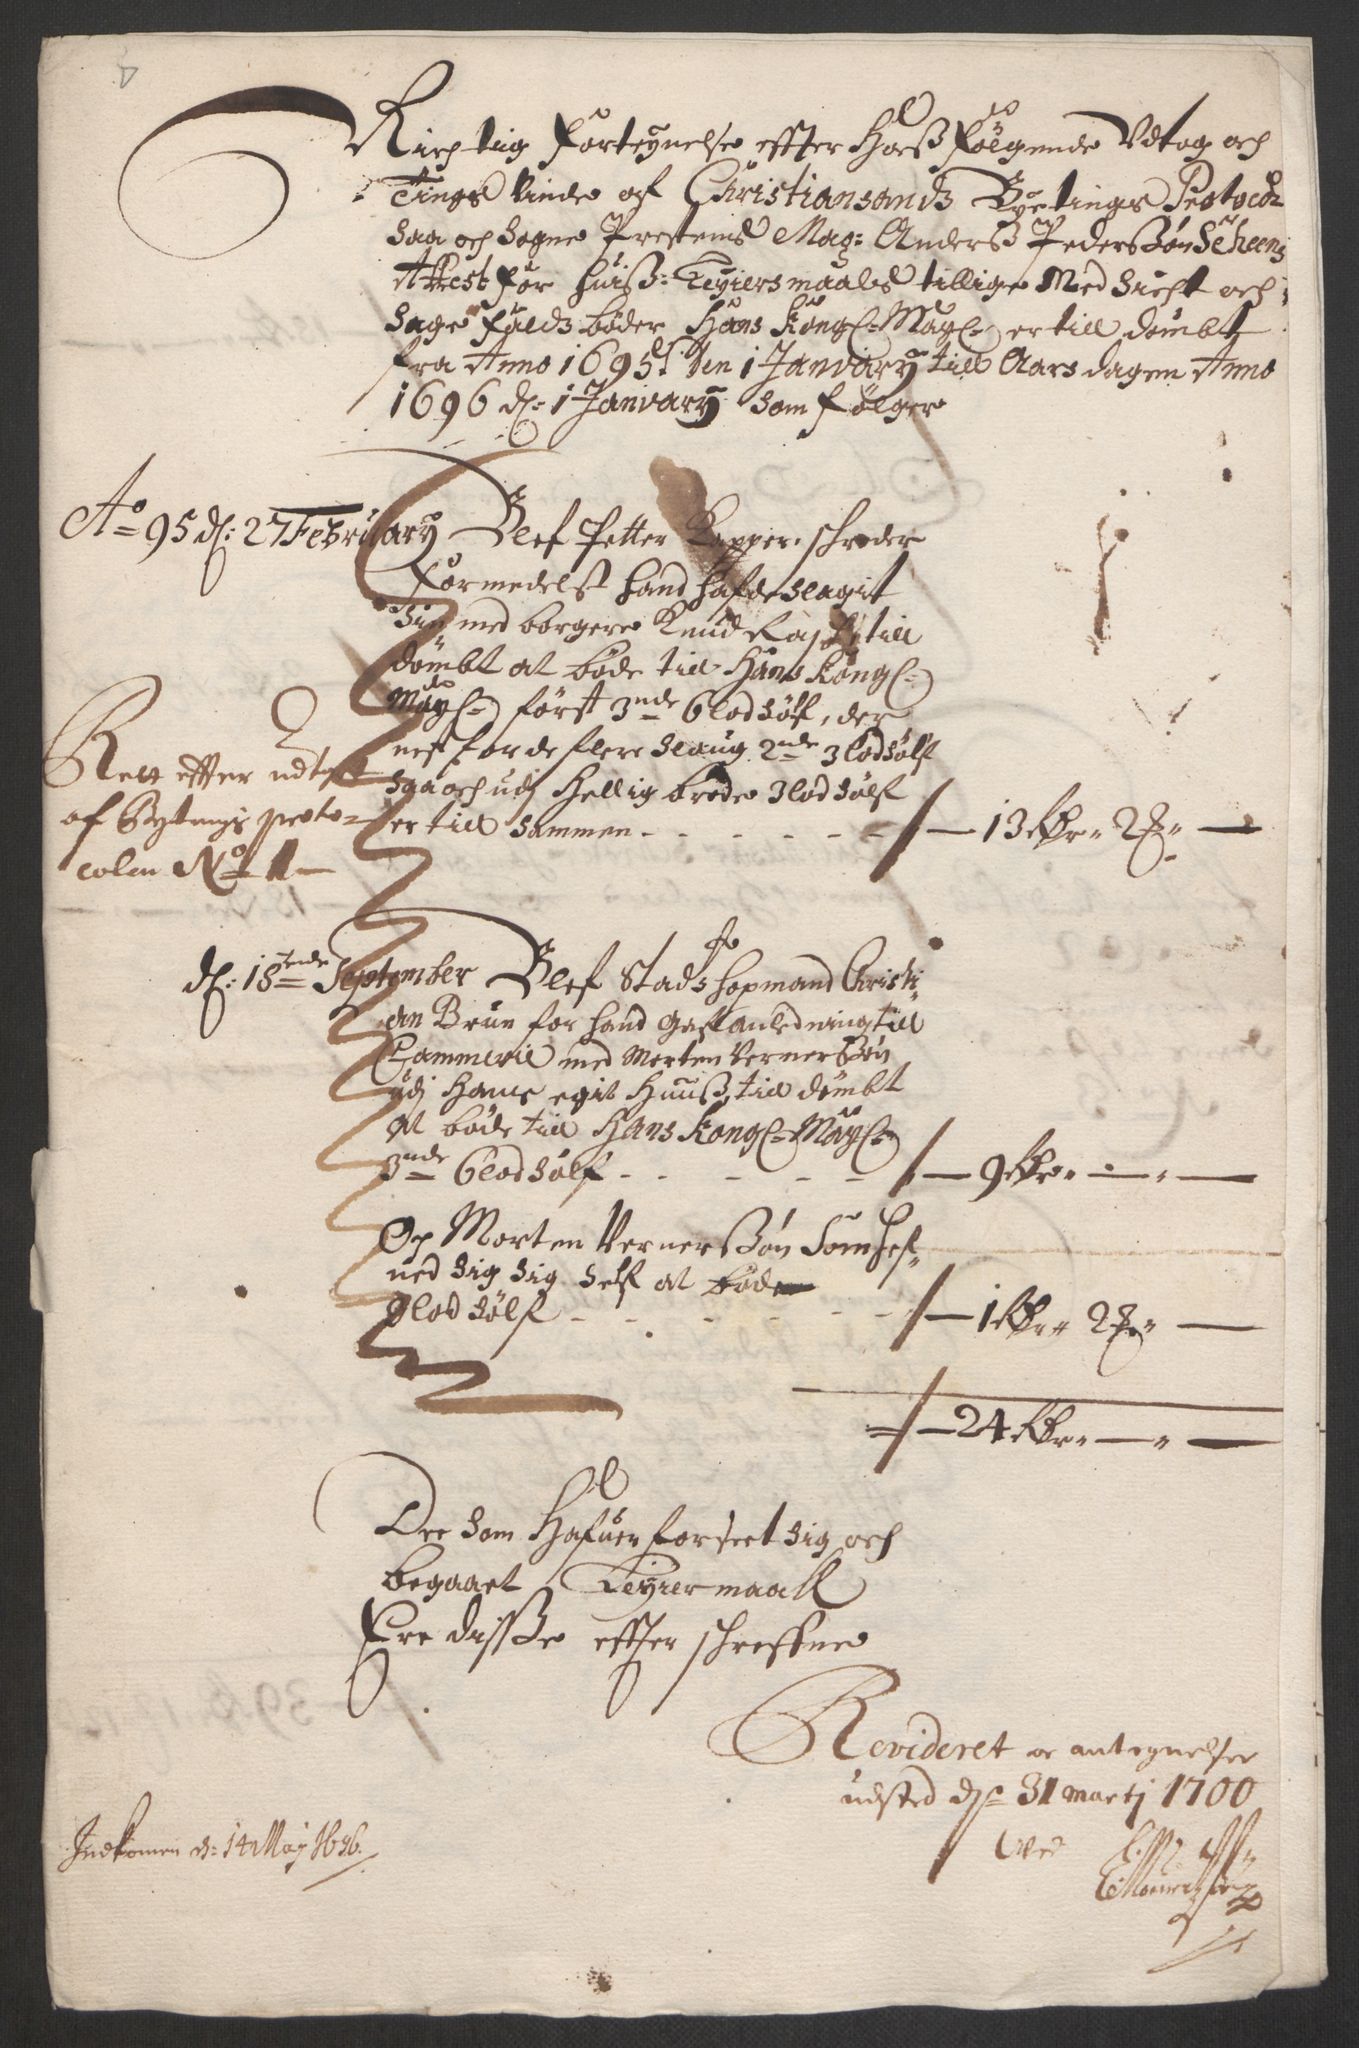 Richtig Forteignelse effter Hoesfølgende Udtog och
Tings Vinde af Christiansands Byetings Protocol
Saa och Sogne Prestens Mag: Anders Pedersøn Scheens
Attest for huis: Leyiersmaals tillige Med Sicht och
Sage falds bøder Hans Kongl: Mayt: er till dømbt
fra Anno 1695 den 1 January till Aars dagen Anno
1696 d: 1 January Som følger
Ao 95 d: 27 February Blef Petter schreder
formedelst hand hafde slagit
Sin med borgere Knud till
dømbt at bøde till Hans Kongl:
Mayt: først 3nde 6 lod sølf, der
nest for de flere slaug 2nde 3 lod sølf
saa och udj Hellig brøde 3 lod sølf
er till sammen - - - - 13 Rdr 2
Rett effter udtog
af Bytings proto=
colen No 1
d: 18tende September Blef Stads hopmand Christi
an Brun for hand gaf anledning till
Clammerie med Morten Vernersøn
udj Hans egit Huus, till dømbt
at bøde till Hans Kongl: Mayt:
3nde 6 lod sølf - - - - 9 Rdr
Og Morten Vernersøn Som hef=
ned sig sig self at bøde
lod sølf - - - - 1 Rdr 2
24 Rdr
Dee Som Hafuer forseet sig och
begaaet Leyiermaall
Ere disse effter schrefne
Revideret oc antegnelser
udsted dend 31 martj 1700
Indkomen d: 14 May 1696.